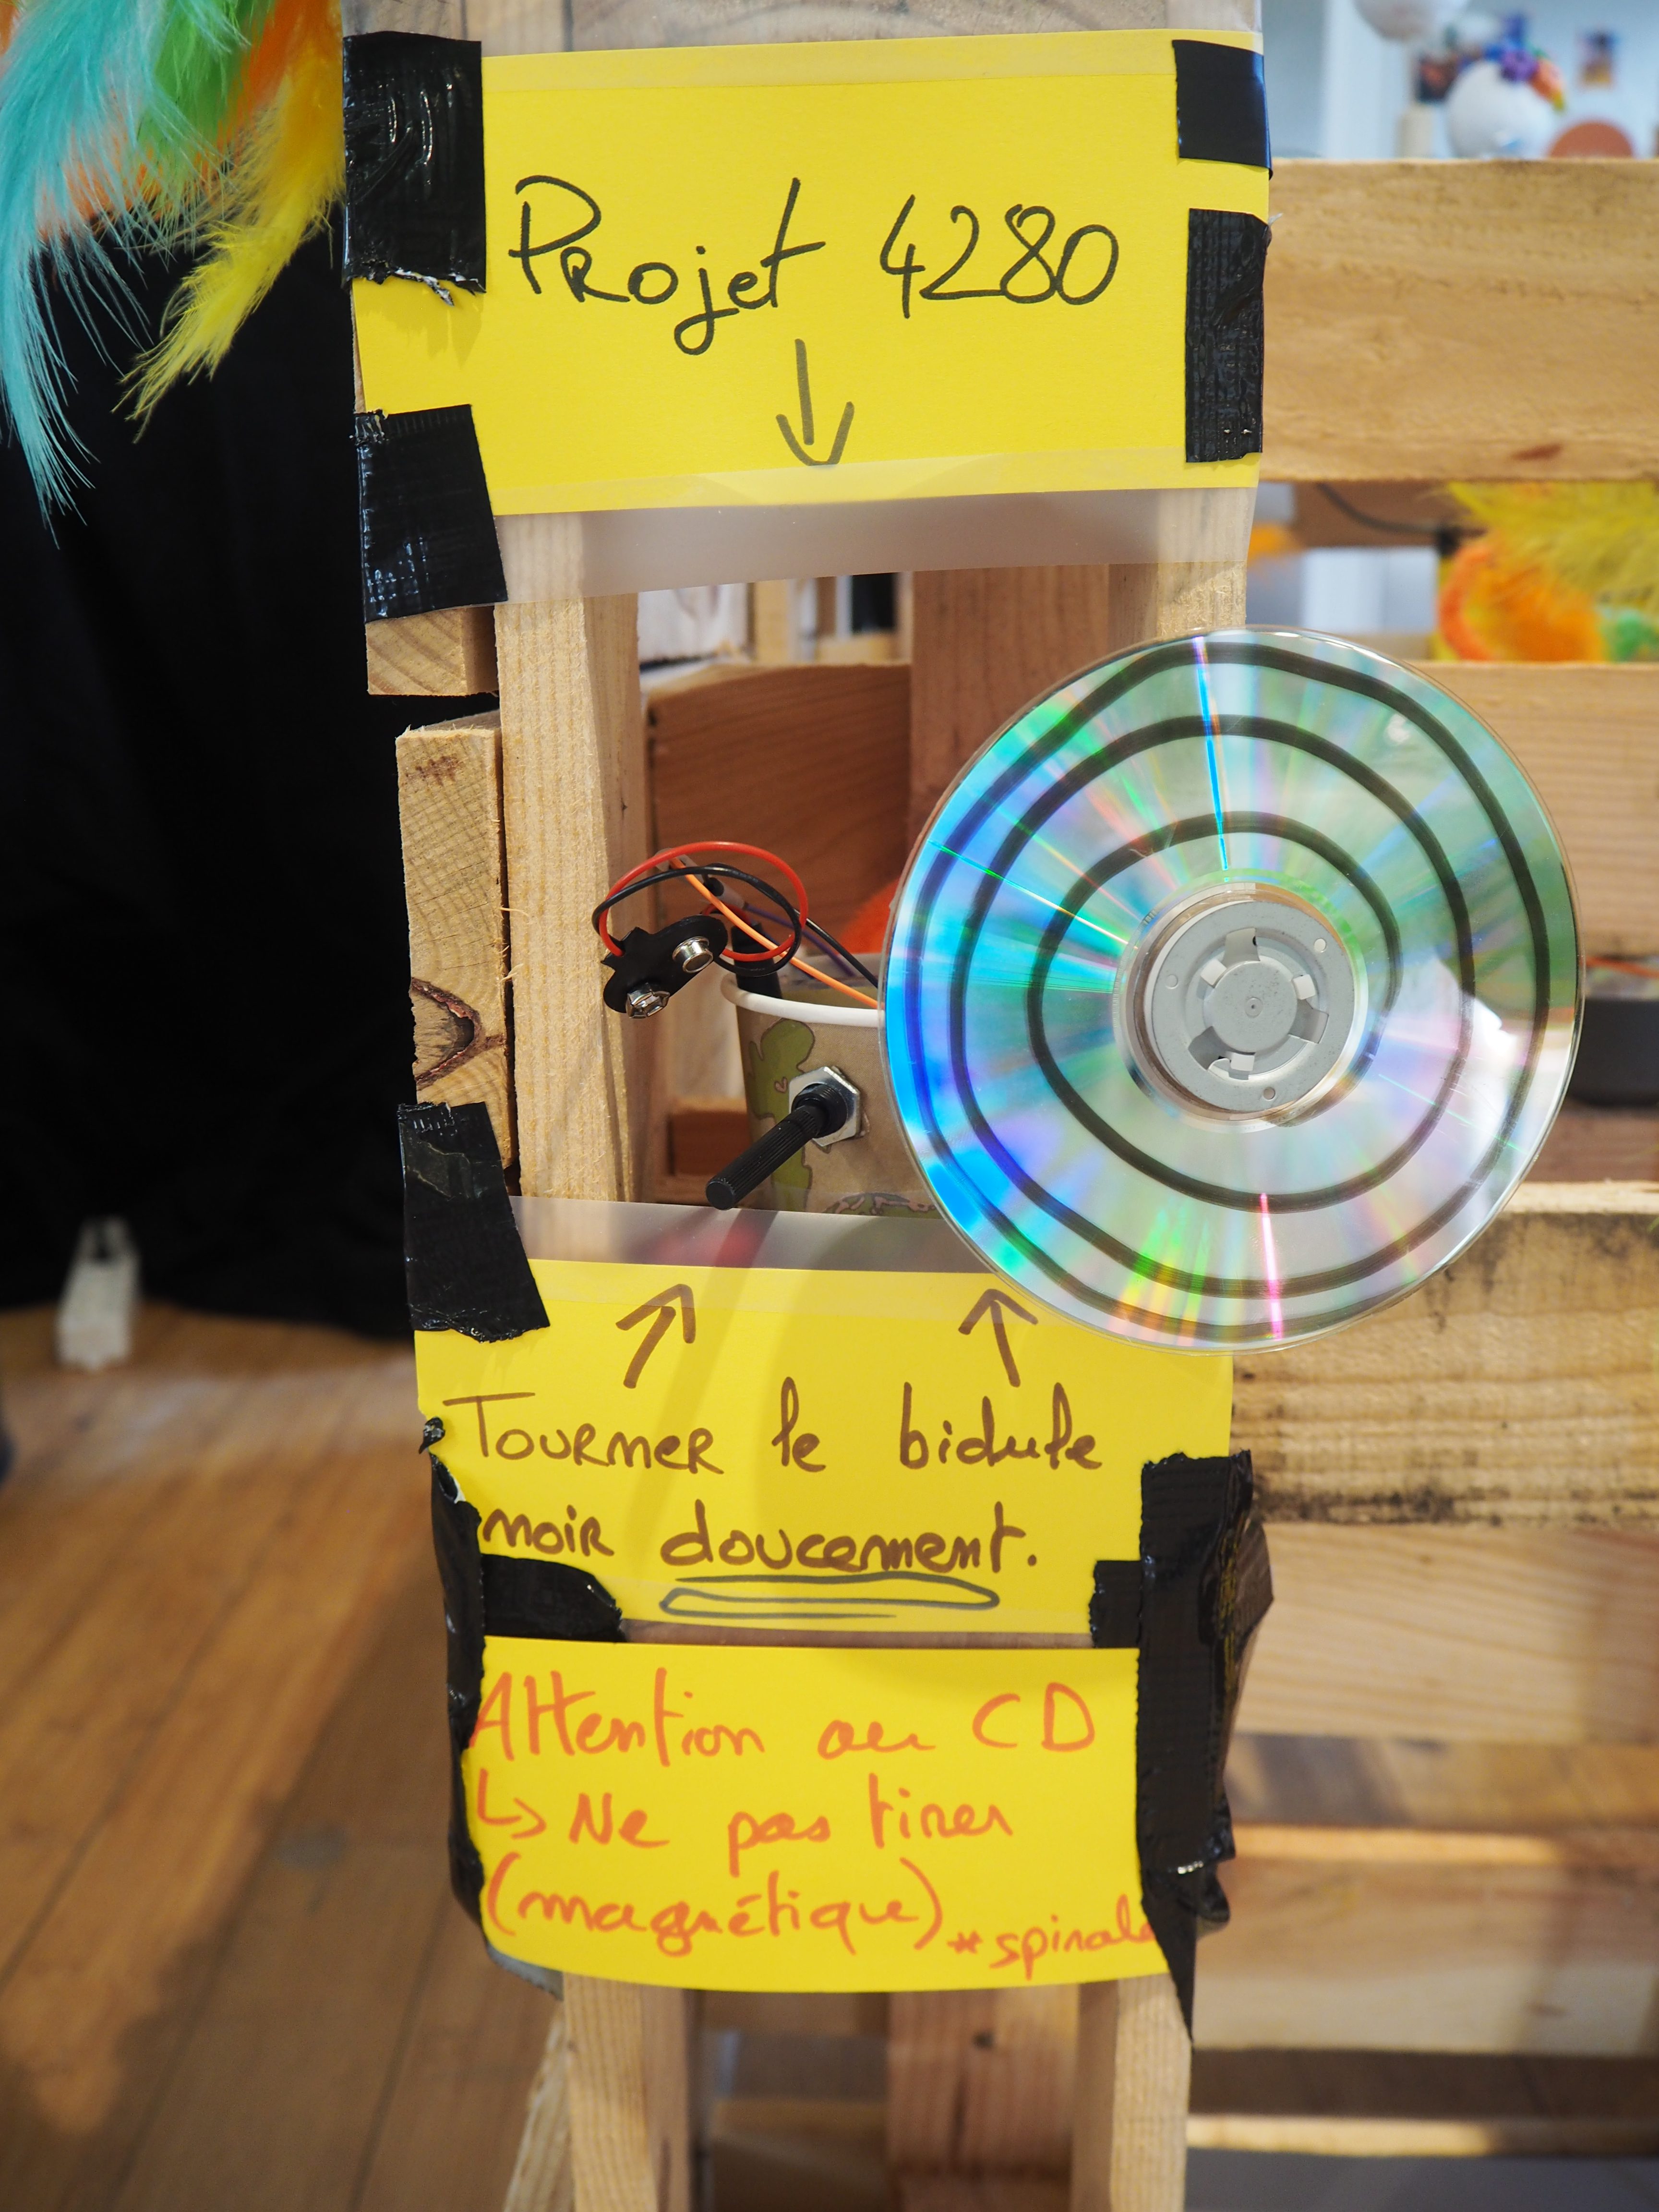 Projet 4280
↓
↑ ↑
Tourner le bidule
noir doucement.
Attention au CD
↳ Ne pas tirer
(magnétique) * spirale